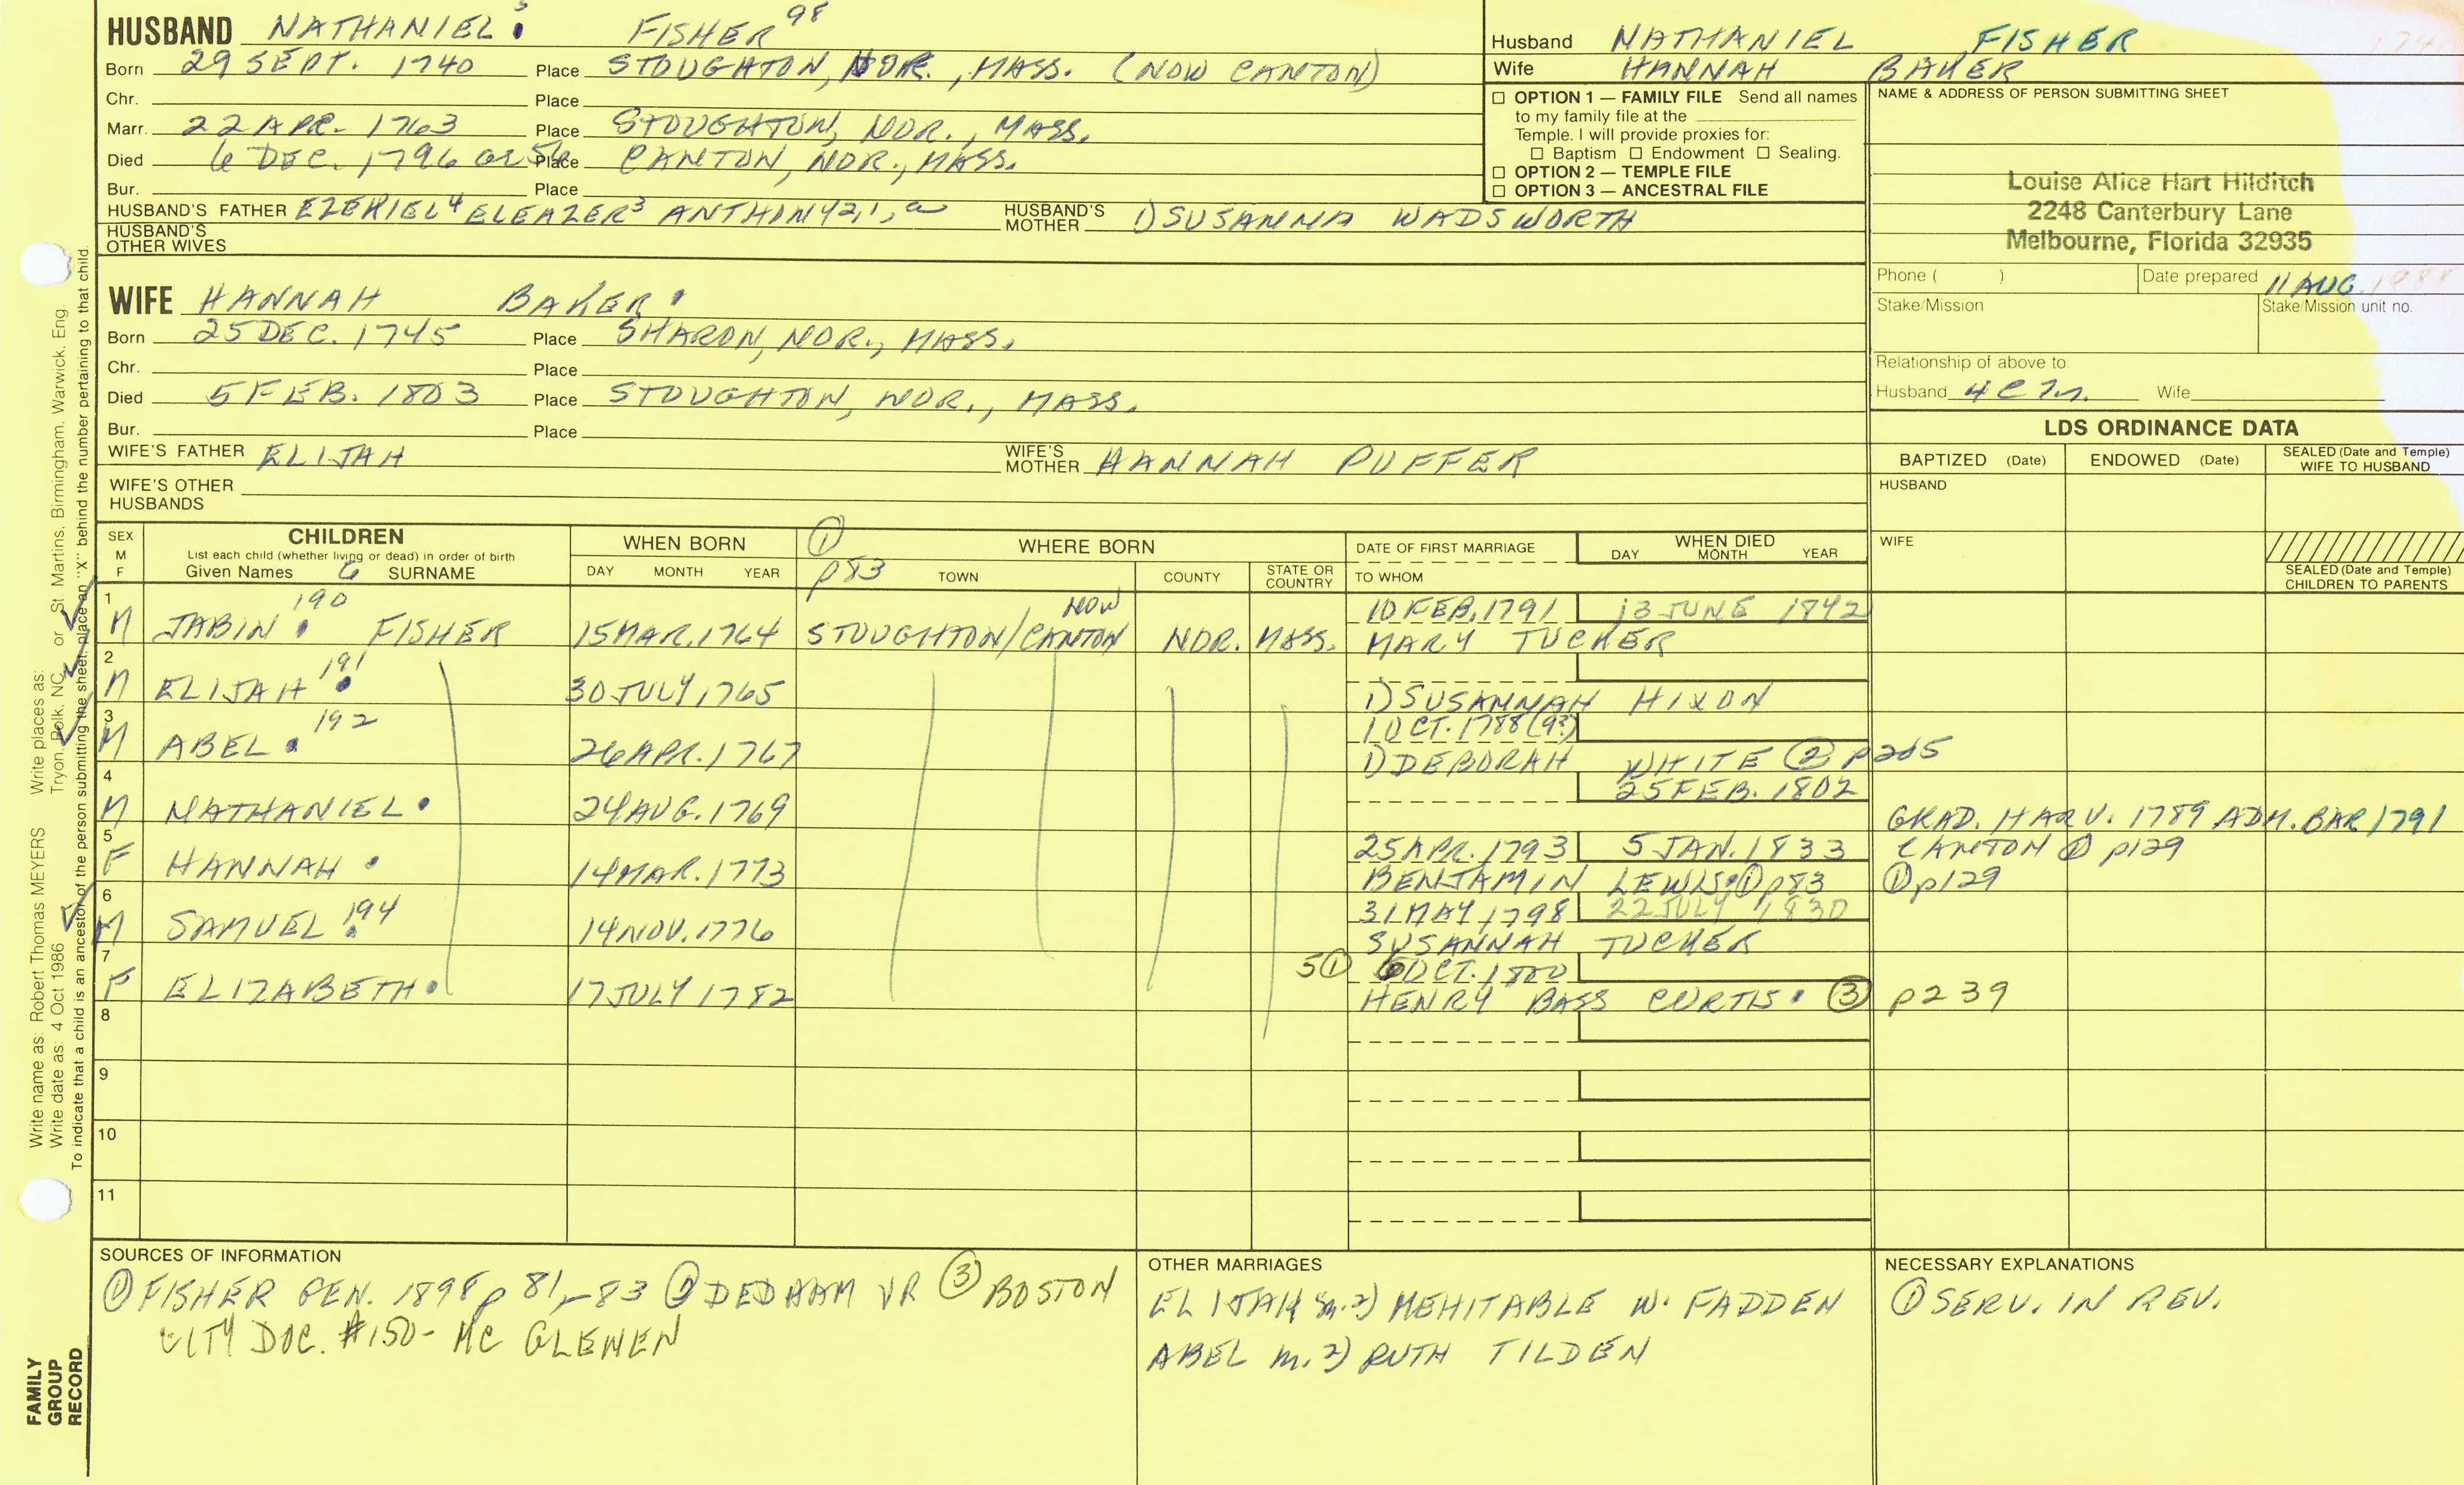 HUSBAND NATHANIEL 5 FISHER 98
Born 29 SEPT. 1740 Place STOUGHTON, NOR., MASS. (NOW CANTON)
Chr. Place
Marr. 22 APR. 1763 Place STOUGHTON, NOR., MASS.
Died 6 DEC. 1796 OR 5 Place CANTON, NOR., MASS.
Bur. Place
HUSBAND'S FATHER EZEKIEL4 ELEAZER3 ANTHONY2,1, HUSBAND'S MOTHER 1) SUSANNA WADSWORTH
HUSBAND'S OTHER WIVES
WIFE HANNAH BAKER
Born 25 DEC. 1745 Place SHARON, NOR., MASS.
Chr. Place
Died 5 FEB. 1803 Place STOUGHTON, NOR., MASS.
Bur. Place
WIFE'S FATHER ELIJAH WIFE'S MOTHER HANNAH PUFFER
WIFE'S OTHER HUSBANDS
Husband NATHANIEL FISHER
Wife HANNAH BAKER
☐ OPTION 1 — FAMILY FILE Send all names
to my family file at the
Temple. I will provide proxies for:
☐ Baptism ☐ Endowment ☐ Sealing.
☐ OPTION 2 — TEMPLE FILE
☐ OPTION 3 — ANCESTRAL FILE
NAME & ADDRESS OF PERSON SUBMITTING SHEET
Louise Alice Hart Hilditch
2248 Canterbury Lane
Melbourne, Florida 32935
Phone ( ) Date prepared 11 AUG. 1988
Stake/Mission Stake/Mission unit no.
Relationship of above to:
Husband 4 C Wife
LDS ORDINANCE DATA
BAPTIZED (Date) ENDOWED (Date) SEALED (Date and Temple) WIFE TO HUSBAND
HUSBAND
WIFE
SEALED (Date and Temple) CHILDREN TO PARENTS
SEX M F
CHILDREN
List each child (whether living or dead) in order of birth
Given Names 6 SURNAME
WHEN BORN
DAY MONTH YEAR
① p83
WHERE BORN
TOWN COUNTY STATE OR COUNTRY
DATE OF FIRST MARRIAGE
TO WHOM
WHEN DIED
DAY MONTH YEAR
1 M JABIN 190 FISHER 15 MAR. 1764 STOUGHTON/NOW CANTON NOR. MASS. 10 FEB. 1791 13 JUNE 1842
MARY TUCKER
2 M ELIJAH 191 30 JULY 1765
1) SUSANNAH HIXON
3 M ABEL 192 26 APR. 1767 1 OCT. 1788 (9?)
1) DEBORAH WHITE ② p205
4 M NATHANIEL 24 AUG. 1769 25 FEB. 1802
GRAD. HARV. 1789 ADM. BAR 1791
5 F HANNAH 14 MAR. 1773 25 APR. 1793 5 JAN. 1833 CANTON ① p129
BENJAMIN LEWIS ① p83 ① p129
6 M SAMUEL 194 14 NOV. 1776 31 MAY 1798 22 JULY 1830
SUSANNAH TUCKER
7 F ELIZABETH 17 JULY 1782 5① 6 OCT. 1800
HENRY BASS CURTIS ③ p239
8
9
10
11
SOURCES OF INFORMATION
① FISHER GEN. 1898 p 81,-83 ② DEDHAM VR ③ BOSTON
CITY DOC. #150- MC GLENEN
OTHER MARRIAGES
ELIJAH m. 2) MEHITABLE W. FADDEN
ABEL m. 2) RUTH TILDEN
NECESSARY EXPLANATIONS
① SERV. IN REV.
Write name as: Robert Thomas MEYERS Write places as: Tryon, Polk, NC or St Martins, Birmingham, Warwick, Eng.
Write date as: 4 Oct 1986
To indicate that a child is an ancestor of the person submitting the sheet, place an "X" behind the number pertaining to that child.
FAMILY
GROUP
RECORD